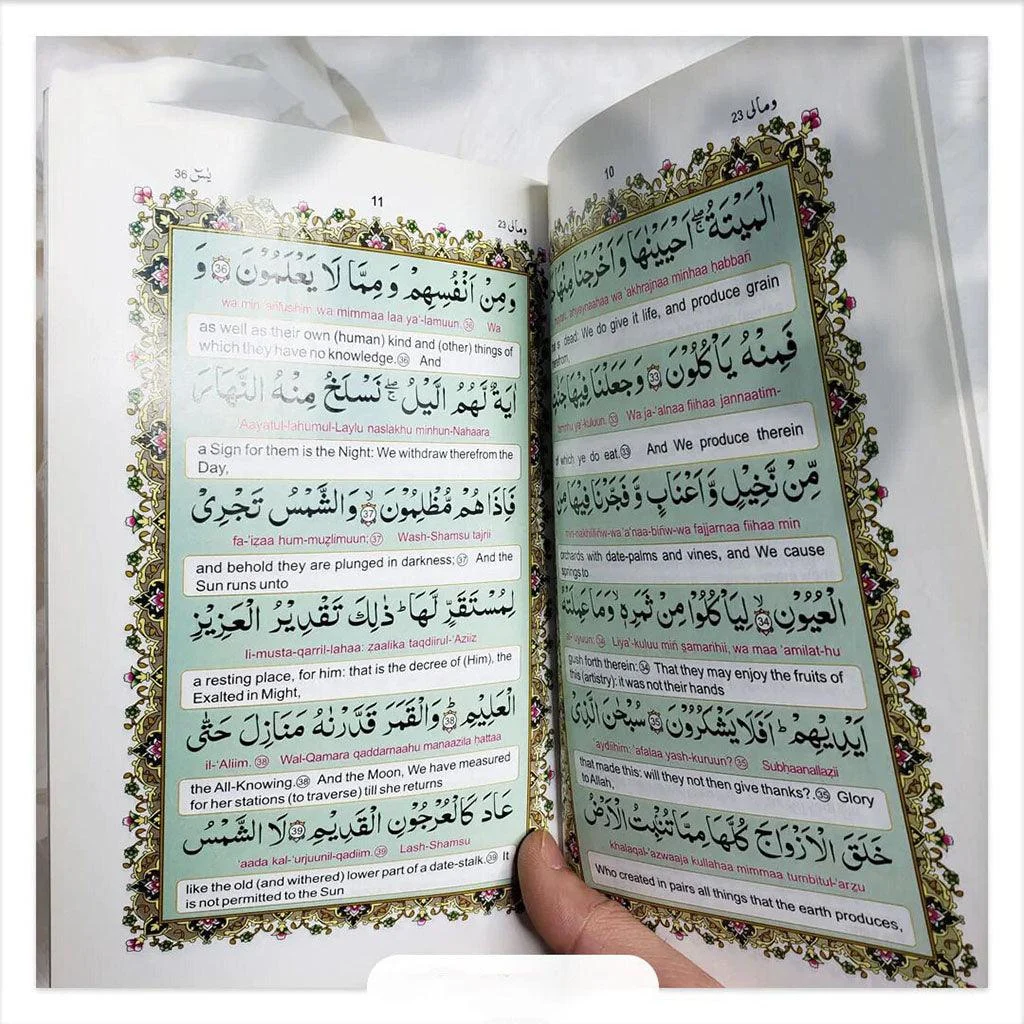 10 ومالی 23
الْمَيْتَةُ ۚۖ اَحْيَيْنٰهَا وَاَخْرَجْنَا مِنْهَا
ahyaynaahaa wa 'akhrajnaa minhaa ḥabbañ
dead: We do give it life, and produce grain
فَمِنْهُ يَاْكُلُوْنَ ﴿33﴾ وَجَعَلْنَا فِيْهَا
ya'-kuluun. ㉝ Wa ja-'alnaa fiihaa jannaatim-
which ye do eat.㉝ And We produce therein
مِّنْ نَّخِيْلٍ وَّاَعْنَابٍ وَّفَجَّرْنَا فِيْهَا مِنَ
min-nakhiiliñw-wa 'a'naa-biñw-wa fajjarnaa fiihaa min
orchards with date-palms and vines, and We cause
springs to
الْعُيُوْنِ ﴿34﴾ۙ لِيَاْكُلُوْا مِنْ ثَمَرِهٖ ۙ وَمَا عَمِلَتْهُ
al-'uyuun: ㉞ Liya'-kuluu miñ s̱amarihii, wa maa 'amilat-hu
gush forth therein:㉞ That they may enjoy the fruits of
this (artistry): it was not their hands
اَيْدِيْهِمْ ؕ اَفَلَا يَشْكُرُوْنَ ﴿35﴾ سُبْحٰنَ الَّذِيْ
'aydiihim: 'afalaa yash-kuruun? ㉟ Subḥaanallazii
that made this: will they not then give thanks?.㉟ Glory
to Allah,
خَلَقَ الْاَزْوَاجَ كُلَّهَا مِمَّا تُنْۢبِتُ الْاَرْضُ
khalaqal-'azwaaja kullahaa mimmaa tumbitul-'arẓu
Who created in pairs all things that the earth produces,
36 يٰسٓ 11 ومالی 23
وَمِنْ اَنْفُسِهِمْ وَمِمَّا لَا يَعْلَمُوْنَ ﴿36﴾ وَ
wa min 'añfusihim wa mimmaa laa ya'-lamuun.㊱ Wa
as well as their own (human) kind and (other) things of
which they have no knowledge.㊱ And
اٰيَةٌ لَّهُمُ الَّيْلُ ۚۖ نَسْلَخُ مِنْهُ النَّهَارَ
'Aayatul-lahumul-Laylu naslakhu minhun-Nahaara
a Sign for them is the Night: We withdraw therefrom the
Day,
فَاِذَا هُمْ مُّظْلِمُوْنَ ﴿37﴾ۙ وَالشَّمْسُ تَجْرِيْ
fa-'iẕaa hum-muẓlimuun;㊲ Wash-Shamsu tajrii
and behold they are plunged in darkness;㊲ And the
Sun runs unto
لِمُسْتَقَرٍّ لَّهَا ؕ ذٰلِكَ تَقْدِيْرُ الْعَزِيْزِ
li-musta-qarril-lahaa: zaalika taqdiirul-'Aziiz
a resting place, for him: that is the decree of (Him), the
Exalted in Might,
الْعَلِيْمِ ؕ ﴿38﴾ وَالْقَمَرَ قَدَّرْنٰهُ مَنَازِلَ حَتّٰى
il-'Aliim. ㊳ Wal-Qamara qaddarnaahu manaazila ḥattaa
the All-Knowing.㊳ And the Moon, We have measured
for her stations (to traverse) till she returns
عَادَ كَالْعُرْجُوْنِ الْقَدِيْمِ ﴿39﴾ لَا الشَّمْسُ
'aada kal-'urjuunil-qadiim.㊴ Lash-Shamsu
like the old (and withered) lower part of a date-stalk.㊴ It
is not permitted to the Sun